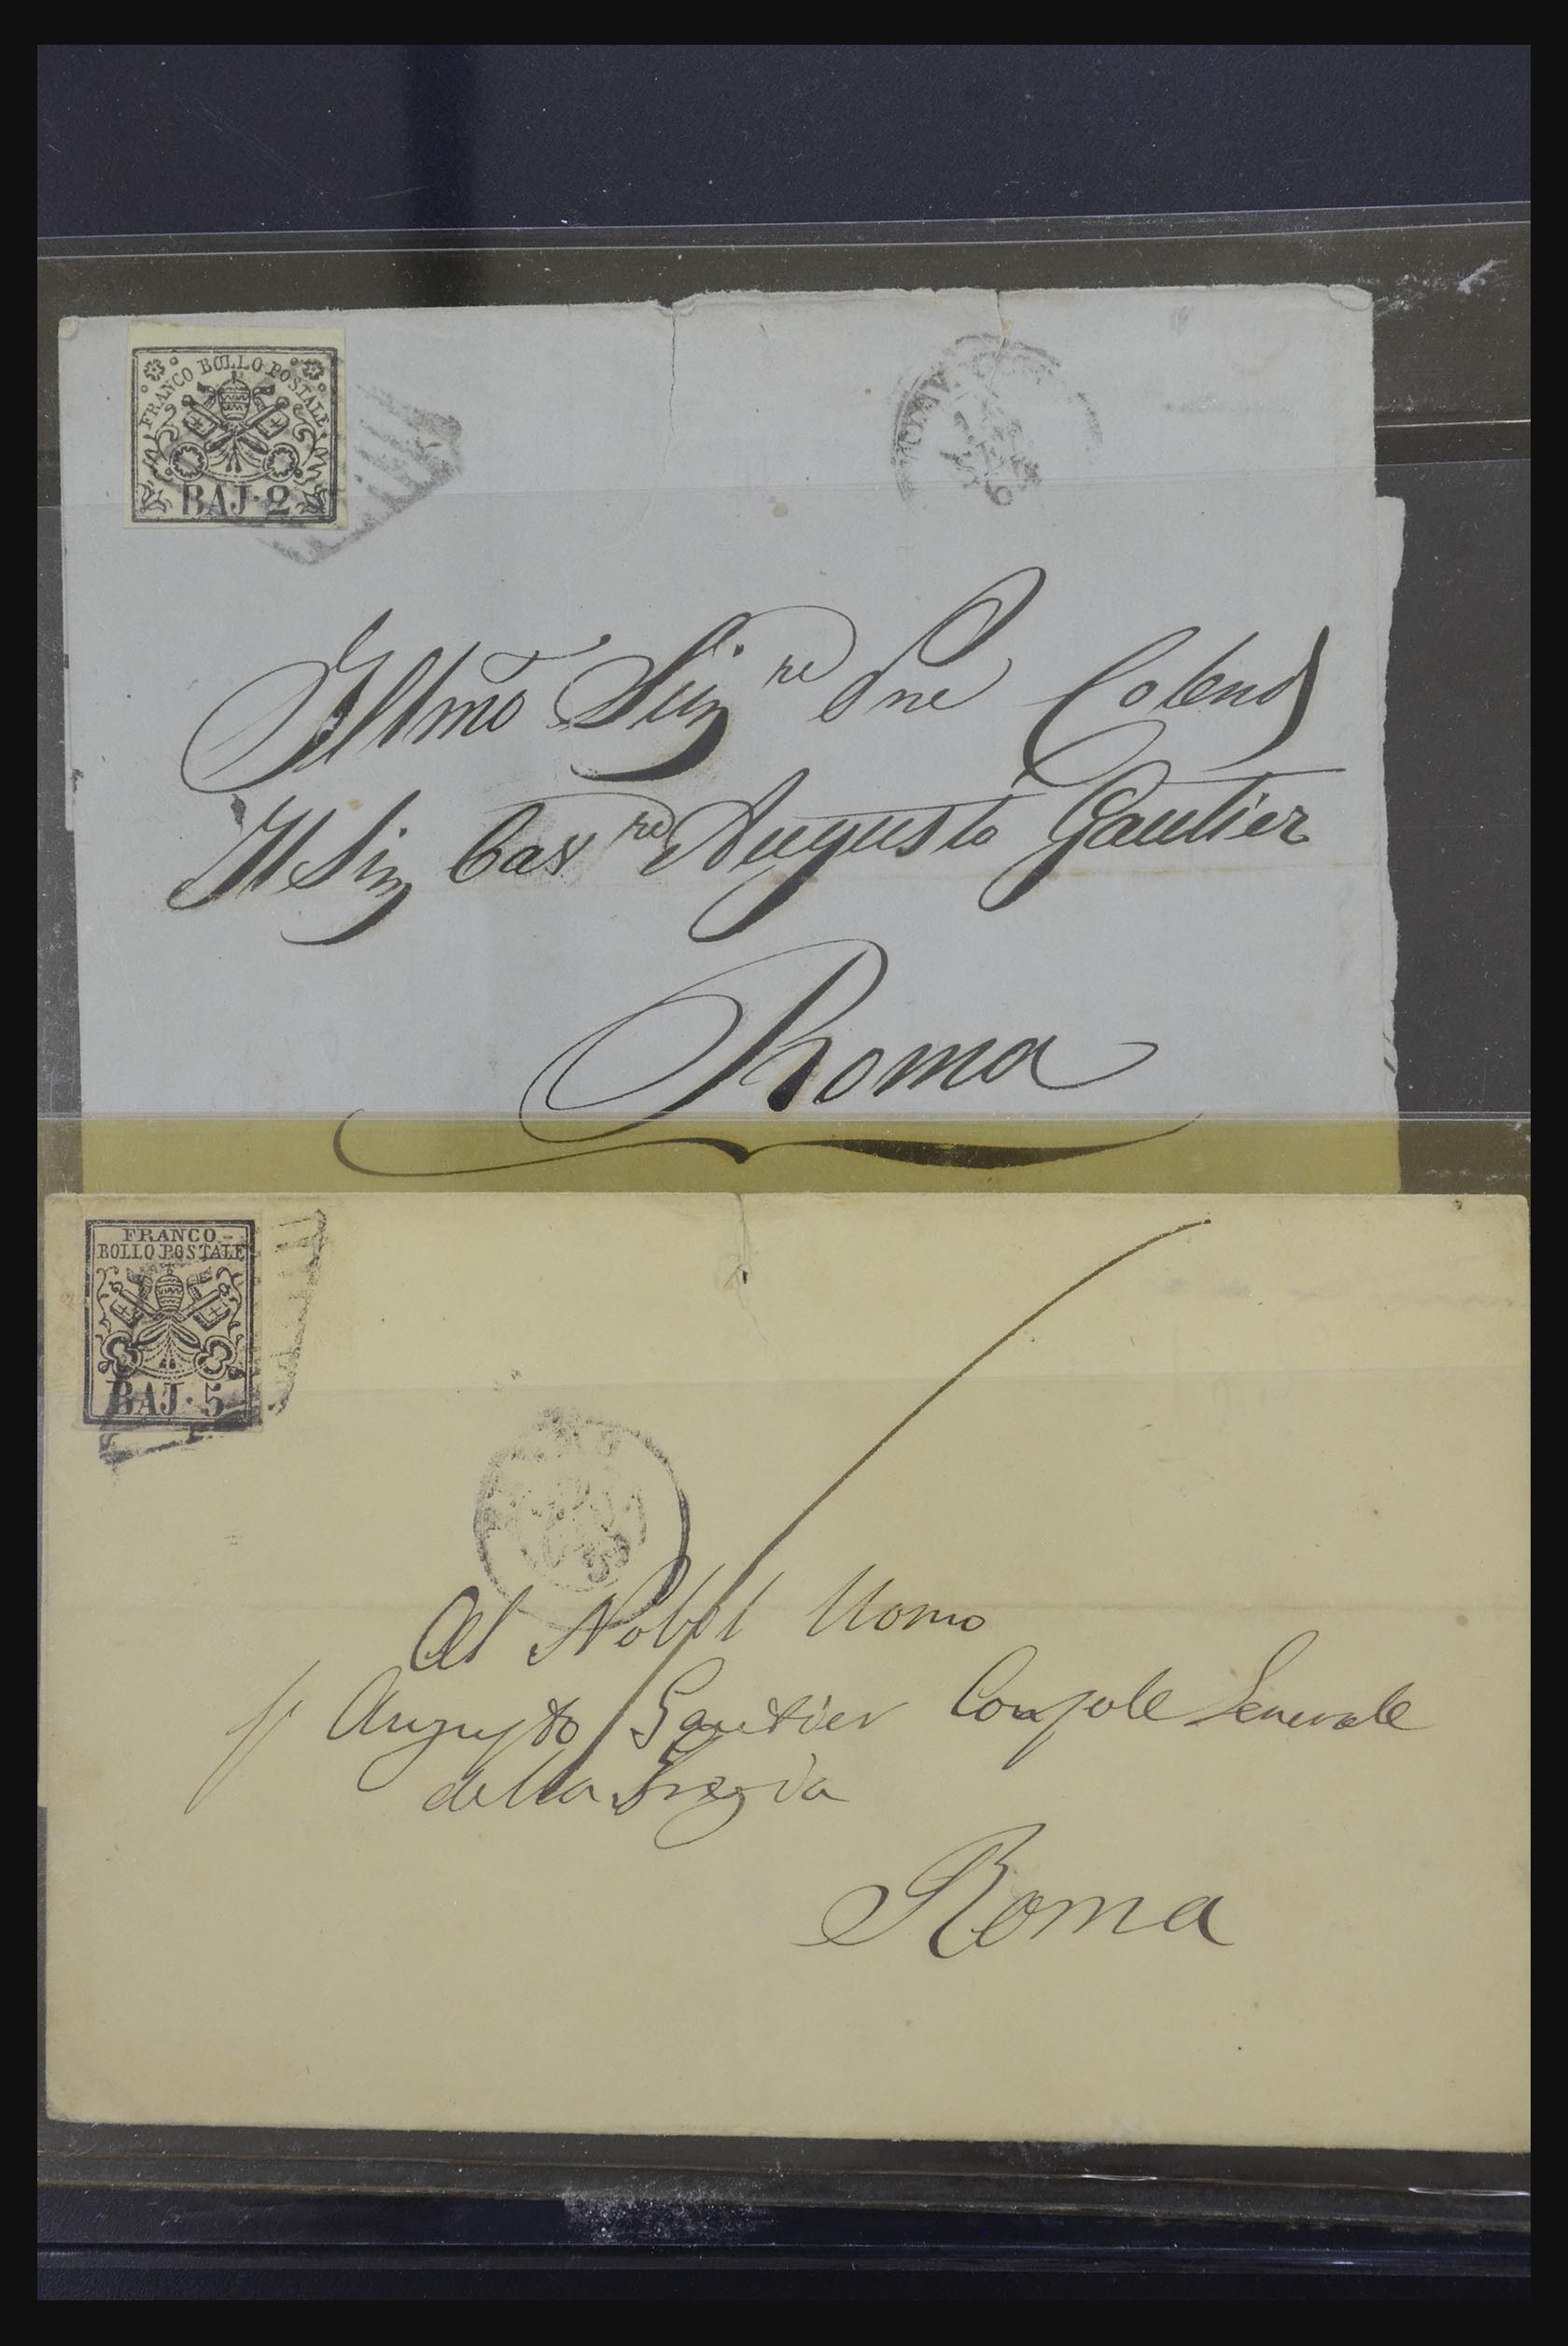 FRANCO BOLLO POSTALE
BAJ·2
Illmo Sigre Pne Colend
Il Sig Cavre Augusto Gautier
Roma
FRANCO
BOLLO POSTALE
BAJ·5
Al Nobil Uomo
Augusto Gautier Console Generale
della Grezia
Roma